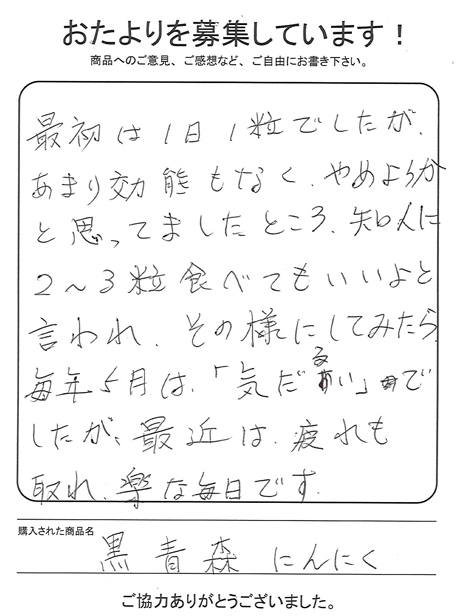 おたよりを募集しています！
商品へのご意見、ご感想など、ご自由にお書き下さい。
最初は1日1粒でしたが、
あまり効能もなく、やめようか
と思ってましたところ、知人に
2～3粒食べてもいいよと
言われ、その様にしてみたら、
毎年5月は、「気だるい」で
したが、最近は、疲れも
取れ、楽な毎日です。
購入された商品名
黒青森にんにく
ご協力ありがとうございました。